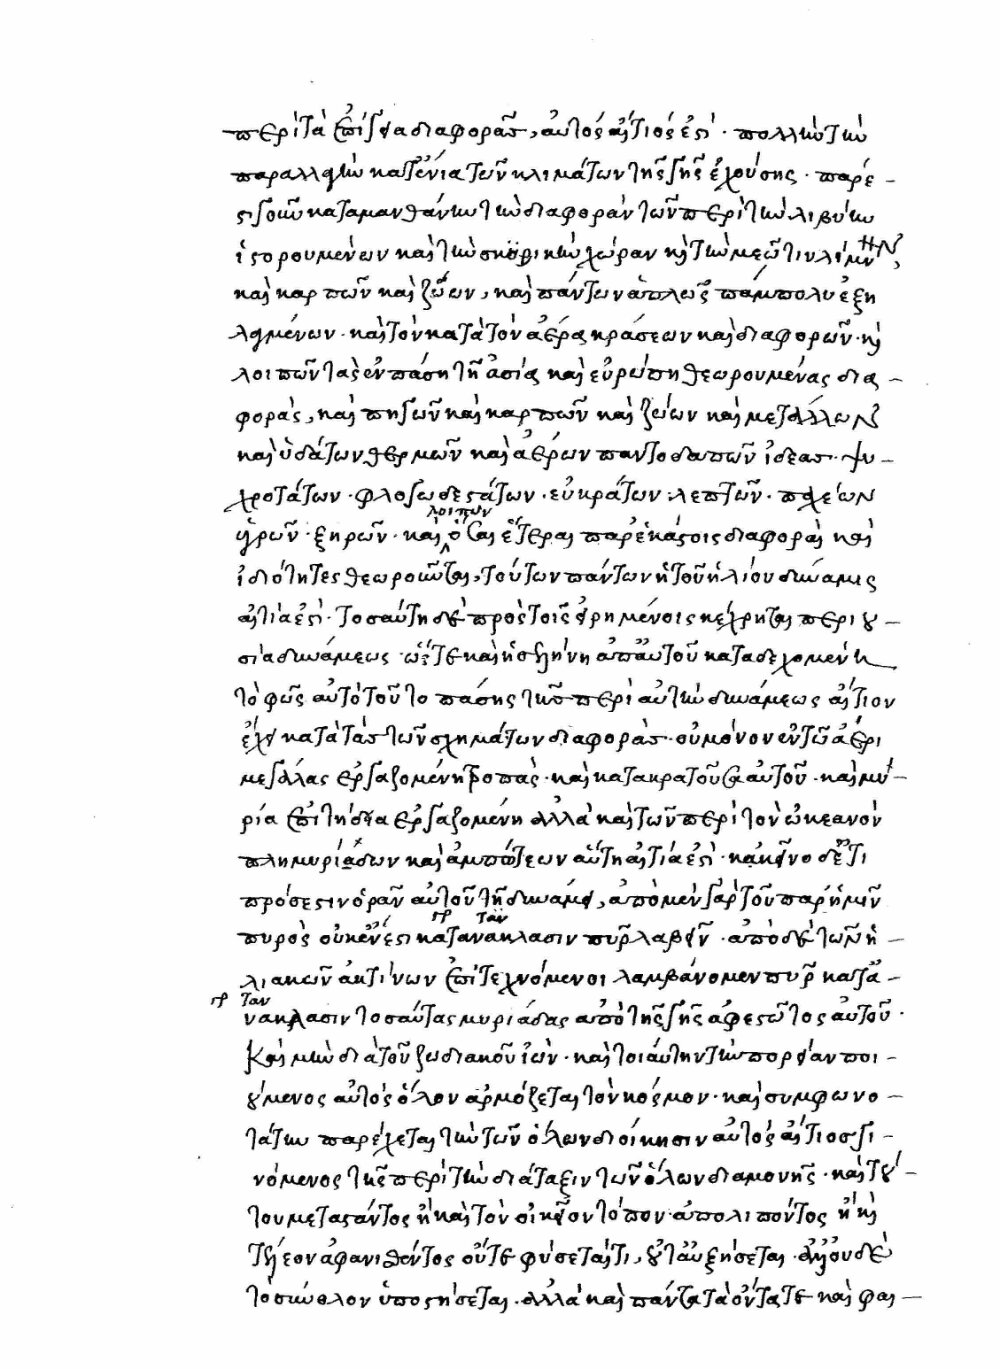 περὶ τὰ ἐπίγεια διαφορᾶς, αὐτὸς αἴτιός ἐστι· πολλὴν τὴν
παραλλαγὴν κατ᾽ ἔνια τῶν κλιμάτων τῆς γῆς ἐχούσης· πάρε –
στι γοῦν καταμανθάνειν τὴν διαφορὰν τῶν περὶ τὴν λιβύην
ἱστορουμένων καὶ τὴν σκυθικὴν χώραν καὶ τὴν μαιῶτιν λίμνην,
καὶ καρπῶν καὶ ζώων, καὶ πάντων ἁπλῶς πάμπολυ ἐξη
λαγμένων· καὶ τὸν κατὰ τὸν ἀέρα κράσεων καὶ διαφορῶν· καὶ
λοιπῶν τὰς ἐν πάση τῆ ἀσία καὶ εὐρώπη θεωρουμένας δια –
φοράς, καὶ πηγῶν καὶ καρπῶν καὶ ζώων καὶ μετάλλων
καὶ ὑδάτων θερμῶν καὶ ἀέρων παντοδαπῶν ἰδέας· ψυ –
χροτάτων· φλογωδεστάτων· εὐκράτων· λεπτῶν· παχέων
ὑγρῶν· ξηρῶν· καὶ λοιπὸν ὅσαι ἕτεραι παρ᾽ ἑκάστοις διαφοραὶ καὶ
ἰδιότητες θεωροῦνται, τούτων πάντων ἡ τοῦ ἡλίου δύναμις
αἰτία ἐστί· τοσαύτη δὲ πρὸς τοῖς εἰρημένοις κέχρηται περιου –
σία δυνάμεως· ὥστε καὶ ἡ σελήνη ἀπ᾽ αὐτοῦ καταδεχομένη
τὸ φῶς αὐτὸ τοῦτο πάσης τῆς περὶ αὐτὴν δυνάμεως αἴτιον
ἔχει κατὰ τὰς τῶν σχημάτων διαφοράς· οὐ μόνον ἐν τῶ ἀέρι
μεγάλας ἐργαζομένη τροπὰς· καὶ κατακρατοῦσα αὐτοῦ· καὶ μυ –
ρία ἐπιτήδεια ἐργαζομένη ἀλλὰ καὶ τῶν περὶ τὸν ὠκεανὸν
πλημυριάδων καὶ ἀμπώτεων αὕτη αἰτία ἐστί· κἀκεῖνο δέ ἔτι
πρόσεστιν ὁρᾶν αὐτοῦ τῆ δυνάμει, ἀπὸ μὲν γὰρ τοῦ παρ᾽ ἡμῖν
πυρὸς οὐκ ἔνεστι κατ᾽ ἀνάκλασιν πῦρ λαβεῖν· ἀπὸ δὲ τῶν ἡ –
λιακῶν ἀκτίνων ἐπιτεχνόμενοι λαμβάνομεν πῦρ κατ᾽ ἀ –
νάκλασιν τοσαύτας μυριάδας ἀπὸ τῆς γῆς ἀφεστῶτος αὐτοῦ·
καὶ μὴν διὰ τοῦ ζωδιακοῦ ἰών· καὶ τοιαύτην τὴν πορείαν ποι –
ούμενος αὐτὸς ὅλον ἁρμόζεται τὸν κόσμον· καὶ συμφωνο –
τάτην παρέχεται τὴν τῶν ὅλων διοίκησιν αὐτὸς αἴτιος γι –
νόμενος τῆς περὶ τὴν διάταξιν τῶν ὅλων διαμονῆς· καὶ τού –
του μεταστάντος ἢ καὶ τὸν οἰκεῖον τόπον ἀπολιπόντος ἢ καὶ
τέλεον ἀφανισθέντος οὔτε φύσεταί τι, οὔτ᾽ αὐξήσεται· ἀλλ᾽ οὐδὲ
τὸ σύνολον ὑποστήσεται· ἀλλὰ καὶ πάντα τὰ ὄντα τε καὶ φαι –